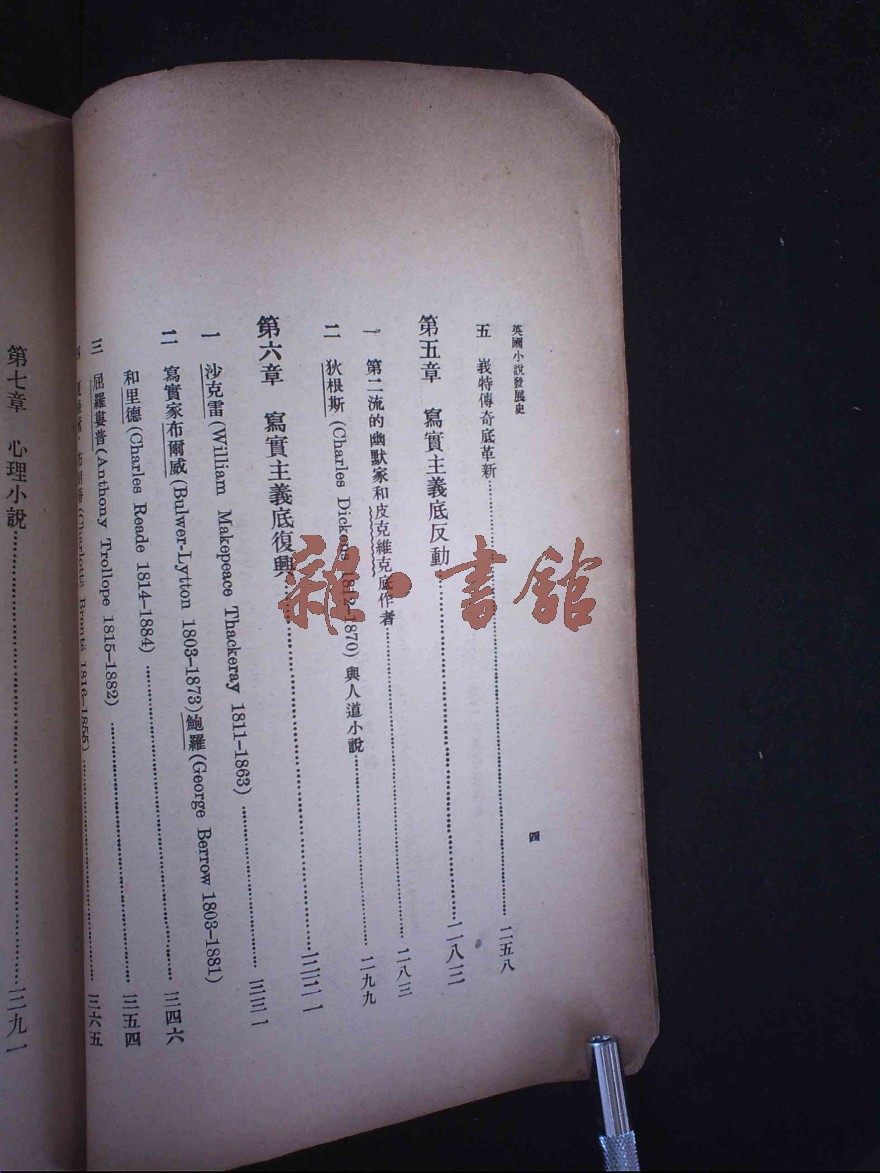 英國小說發展史
四
五 峩特傳奇底革新……二五八
第五章 寫實主義底反動……二八三
一 第二流的幽默家和皮克維克底作者……二八三
二 狄根斯(Charles Dickens 1812–1870)與人道小說……二九九
第六章 寫實主義底復興……
一 沙克雷(William Makepeace Thackeray 1811–1863)……
二 寫實家布爾威(Bulwer-Lytton 1803–1873)鮑羅(George Berrow 1803–1881)
和里德(Charles Reade 1814–1884)……三四六
三 屈羅婁普(Anthony Trollope 1815–1882)……三五四
四 (Charlotte Brontë 1816–1855)……三六五
第七章 心理小說……三九一
雜·書館